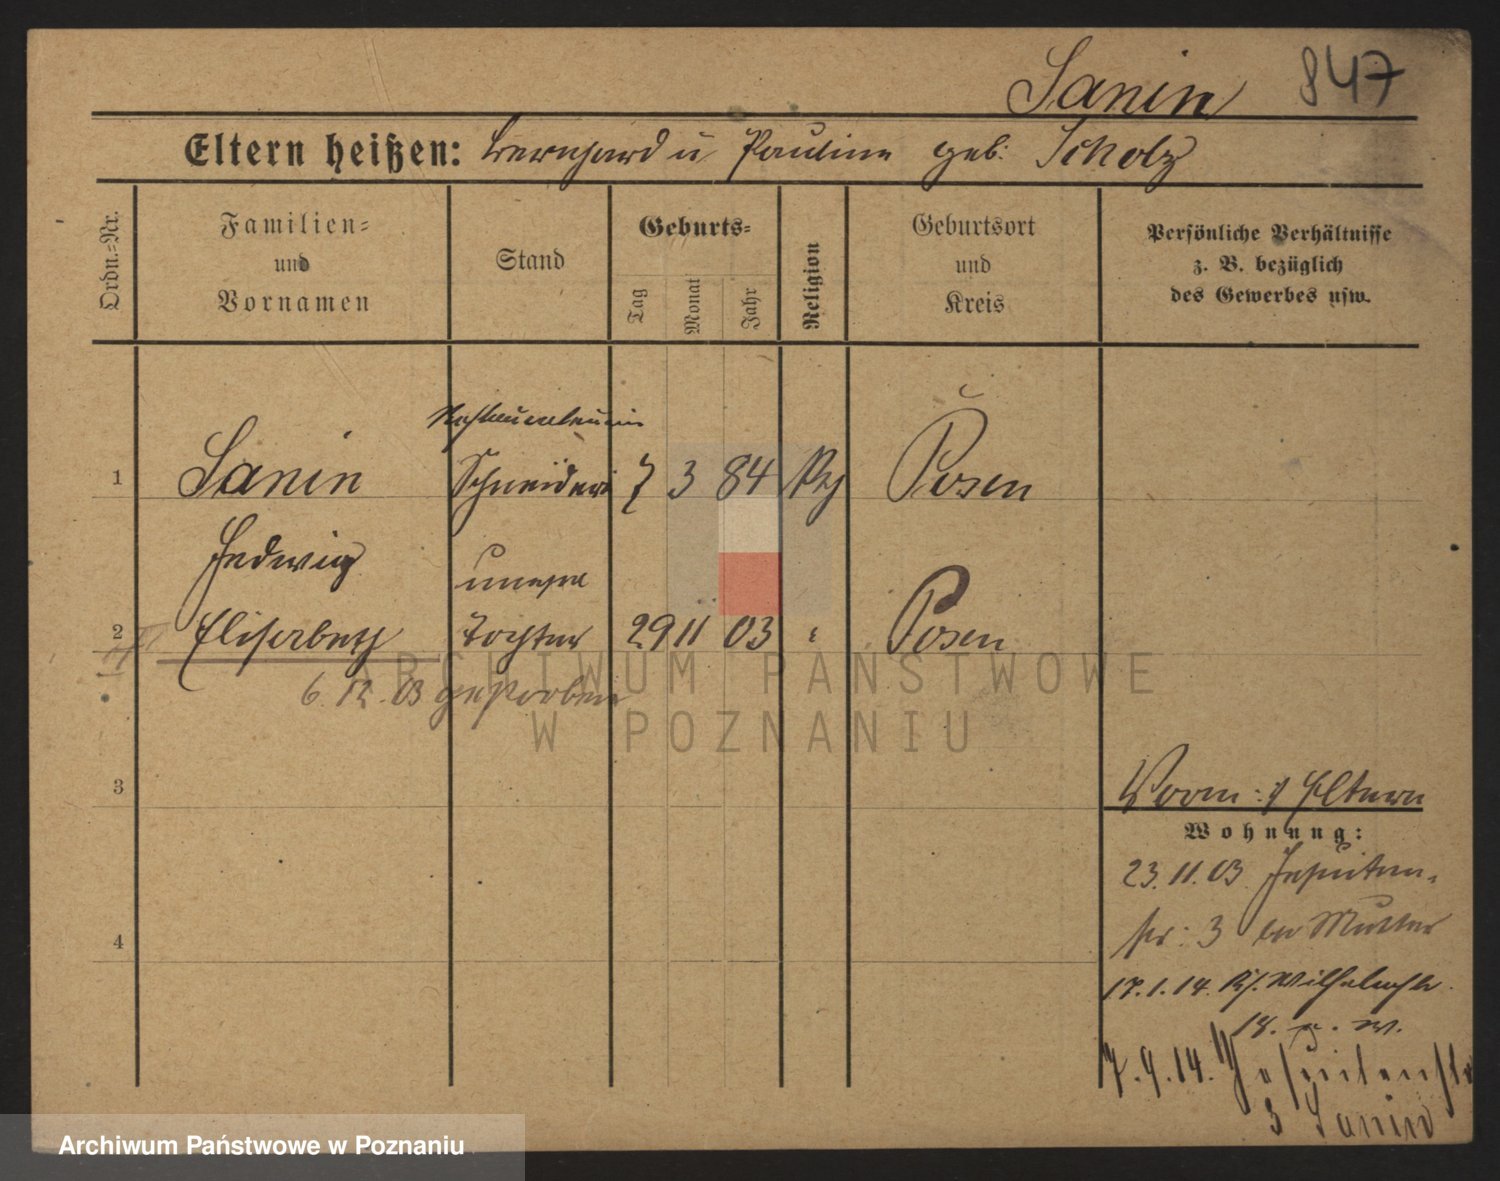 Sanin 847
Eltern heißen: Bernhard u Pauline geb. Scholz
Ordn.-Nr.
Familien-
und
Vornamen
Stand
Geburts-
Tag
Monat
Jahr
Religion
Geburtsort
und
Kreis
Persönliche Verhältnisse
z. B. bezüglich
des Gewerbes usw.
1 Sanin Schneiderin 7 3 84 Posen
Hedwig
2 Elisabeth Tochter 29 11 03 Posen
6.12.03 gestorben
3
4
Eltern
Wohnung:
23.11.03 Jesuiten-
str. 3 Mutter
17.1.14.
18.
7.9.14. Jesuitenstr
3 Sanin
ARCHIWUM PAŃSTWOWE
W POZNANIU
Archiwum Państwowe w Poznaniu